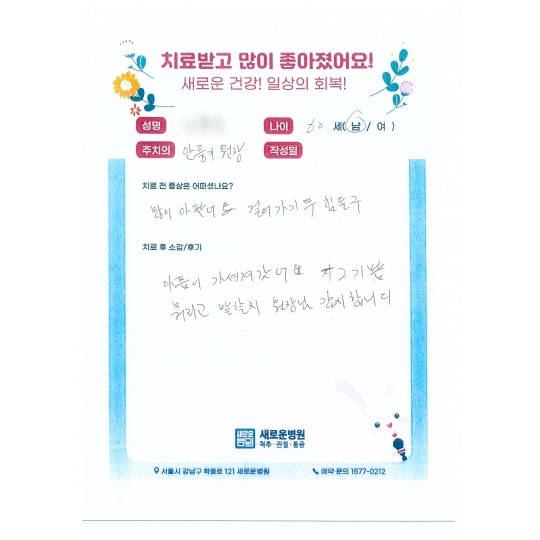 치료받고 많이 좋아졌어요!
새로운 건강! 일상의 회복!
성명
나이 60 세( 남 / 여 )
주치의 안풍기 원장 작성일
치료 전 증상은 어떠셨나요?
많이 아팠너요 걸어가기무 힘들구
치료 후 소감/후기
아픔이 가셔져갓너요 그 기쁨
뭐라고 말할지 원장님 감사합니다
새로운병원
새로운병원
척추·관절·통증
서울시 강남구 학동로 121 새로운병원
예약·문의 1577-0212